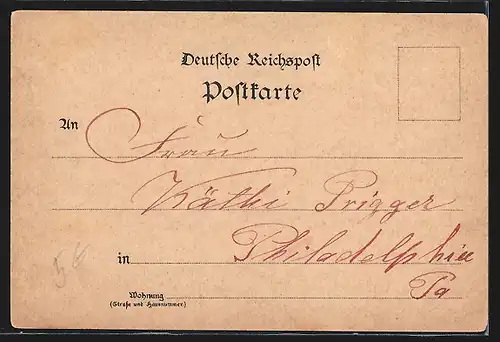 Deutsche Reichspost
Postkarte
An Frau
Käthi Prigger
in Philadelphia
Pa
Wohnung
(Straße und Hausnummer)
54